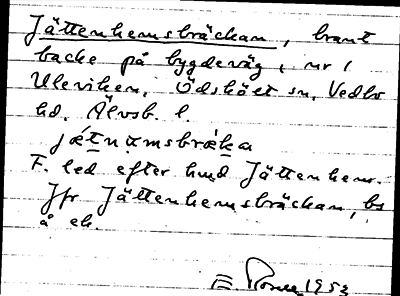 Jättenhemsbräckan, brant
backe på bygdeväg, nr 1
Uleviken, Ödskölt sn, Vedbo
hd, Älvsb. l.
jætnɪmsbræka
F. led efter hmd Jättenhem.
Jfr Jättenhemsbräckan, bs
å ek.
1953